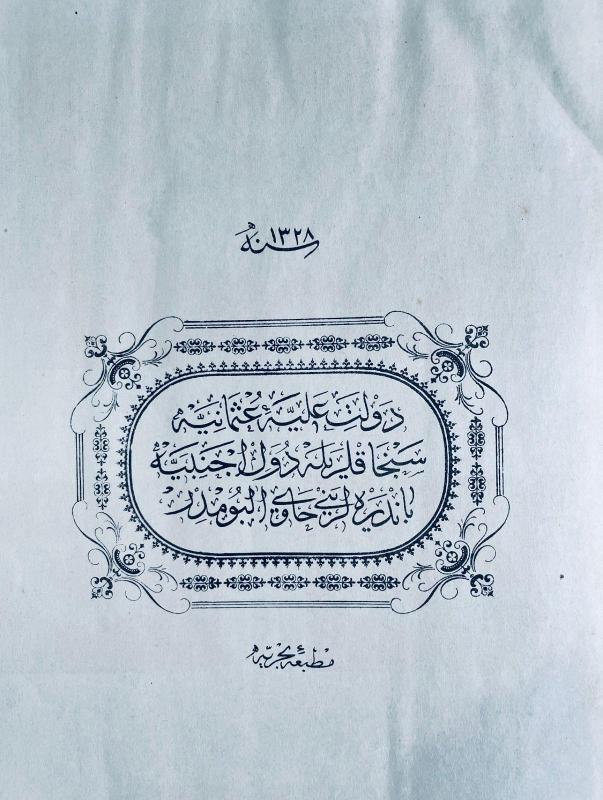 سنه ١٣٢٨
دولت عليۀ عثمانيه
سنجاقلريله دول اجنبيه
بانديره لريني حاوي البومدر
مطبعۀ بحريه